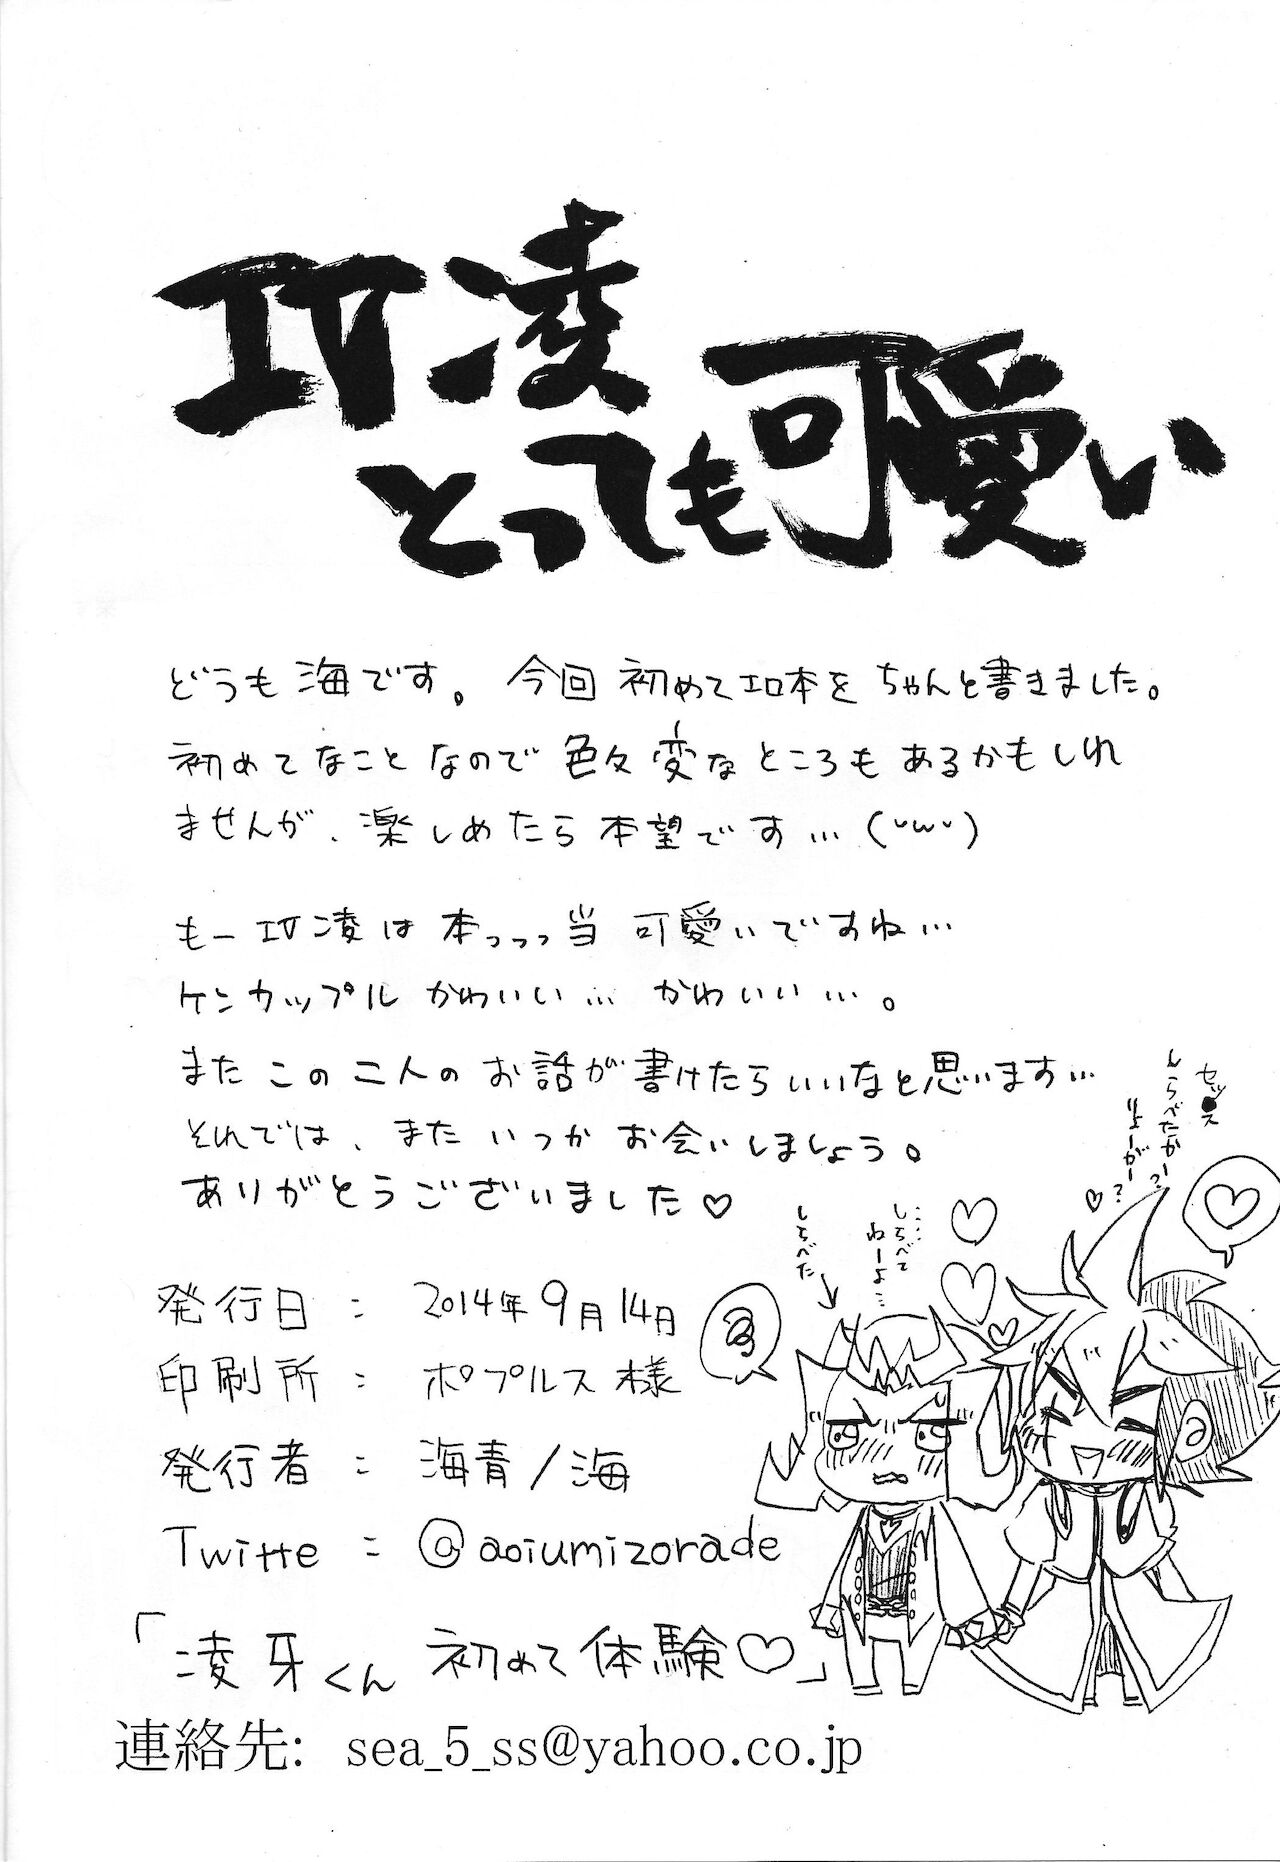 IV凌
とっても可愛い
どうも海です。今回初めてエロ本をちゃんと書きました。
初めてなことなので色々変なところもあるかもしれ
ませんが、楽しめたら本望です…(˘ω˘)
もーIV凌は本っっっ当可愛いですね…
ケンカップルかわいい…かわいい…。
またこの二人のお話が書けたらいいなと思います…
それでは、またいつかお会いしましょう。
ありがとうございました♡
セッ●ス
しらべたかー?
りょーがー?♡
……しらべて
ねーよ…
しらべた
発行日：2014年9月14日
印刷所：ポプルス様
発行者：海青/海
Twitte：@aoiumizorade
「凌牙くん初めて体験♡」
連絡先: sea_5_ss@yahoo.co.jp